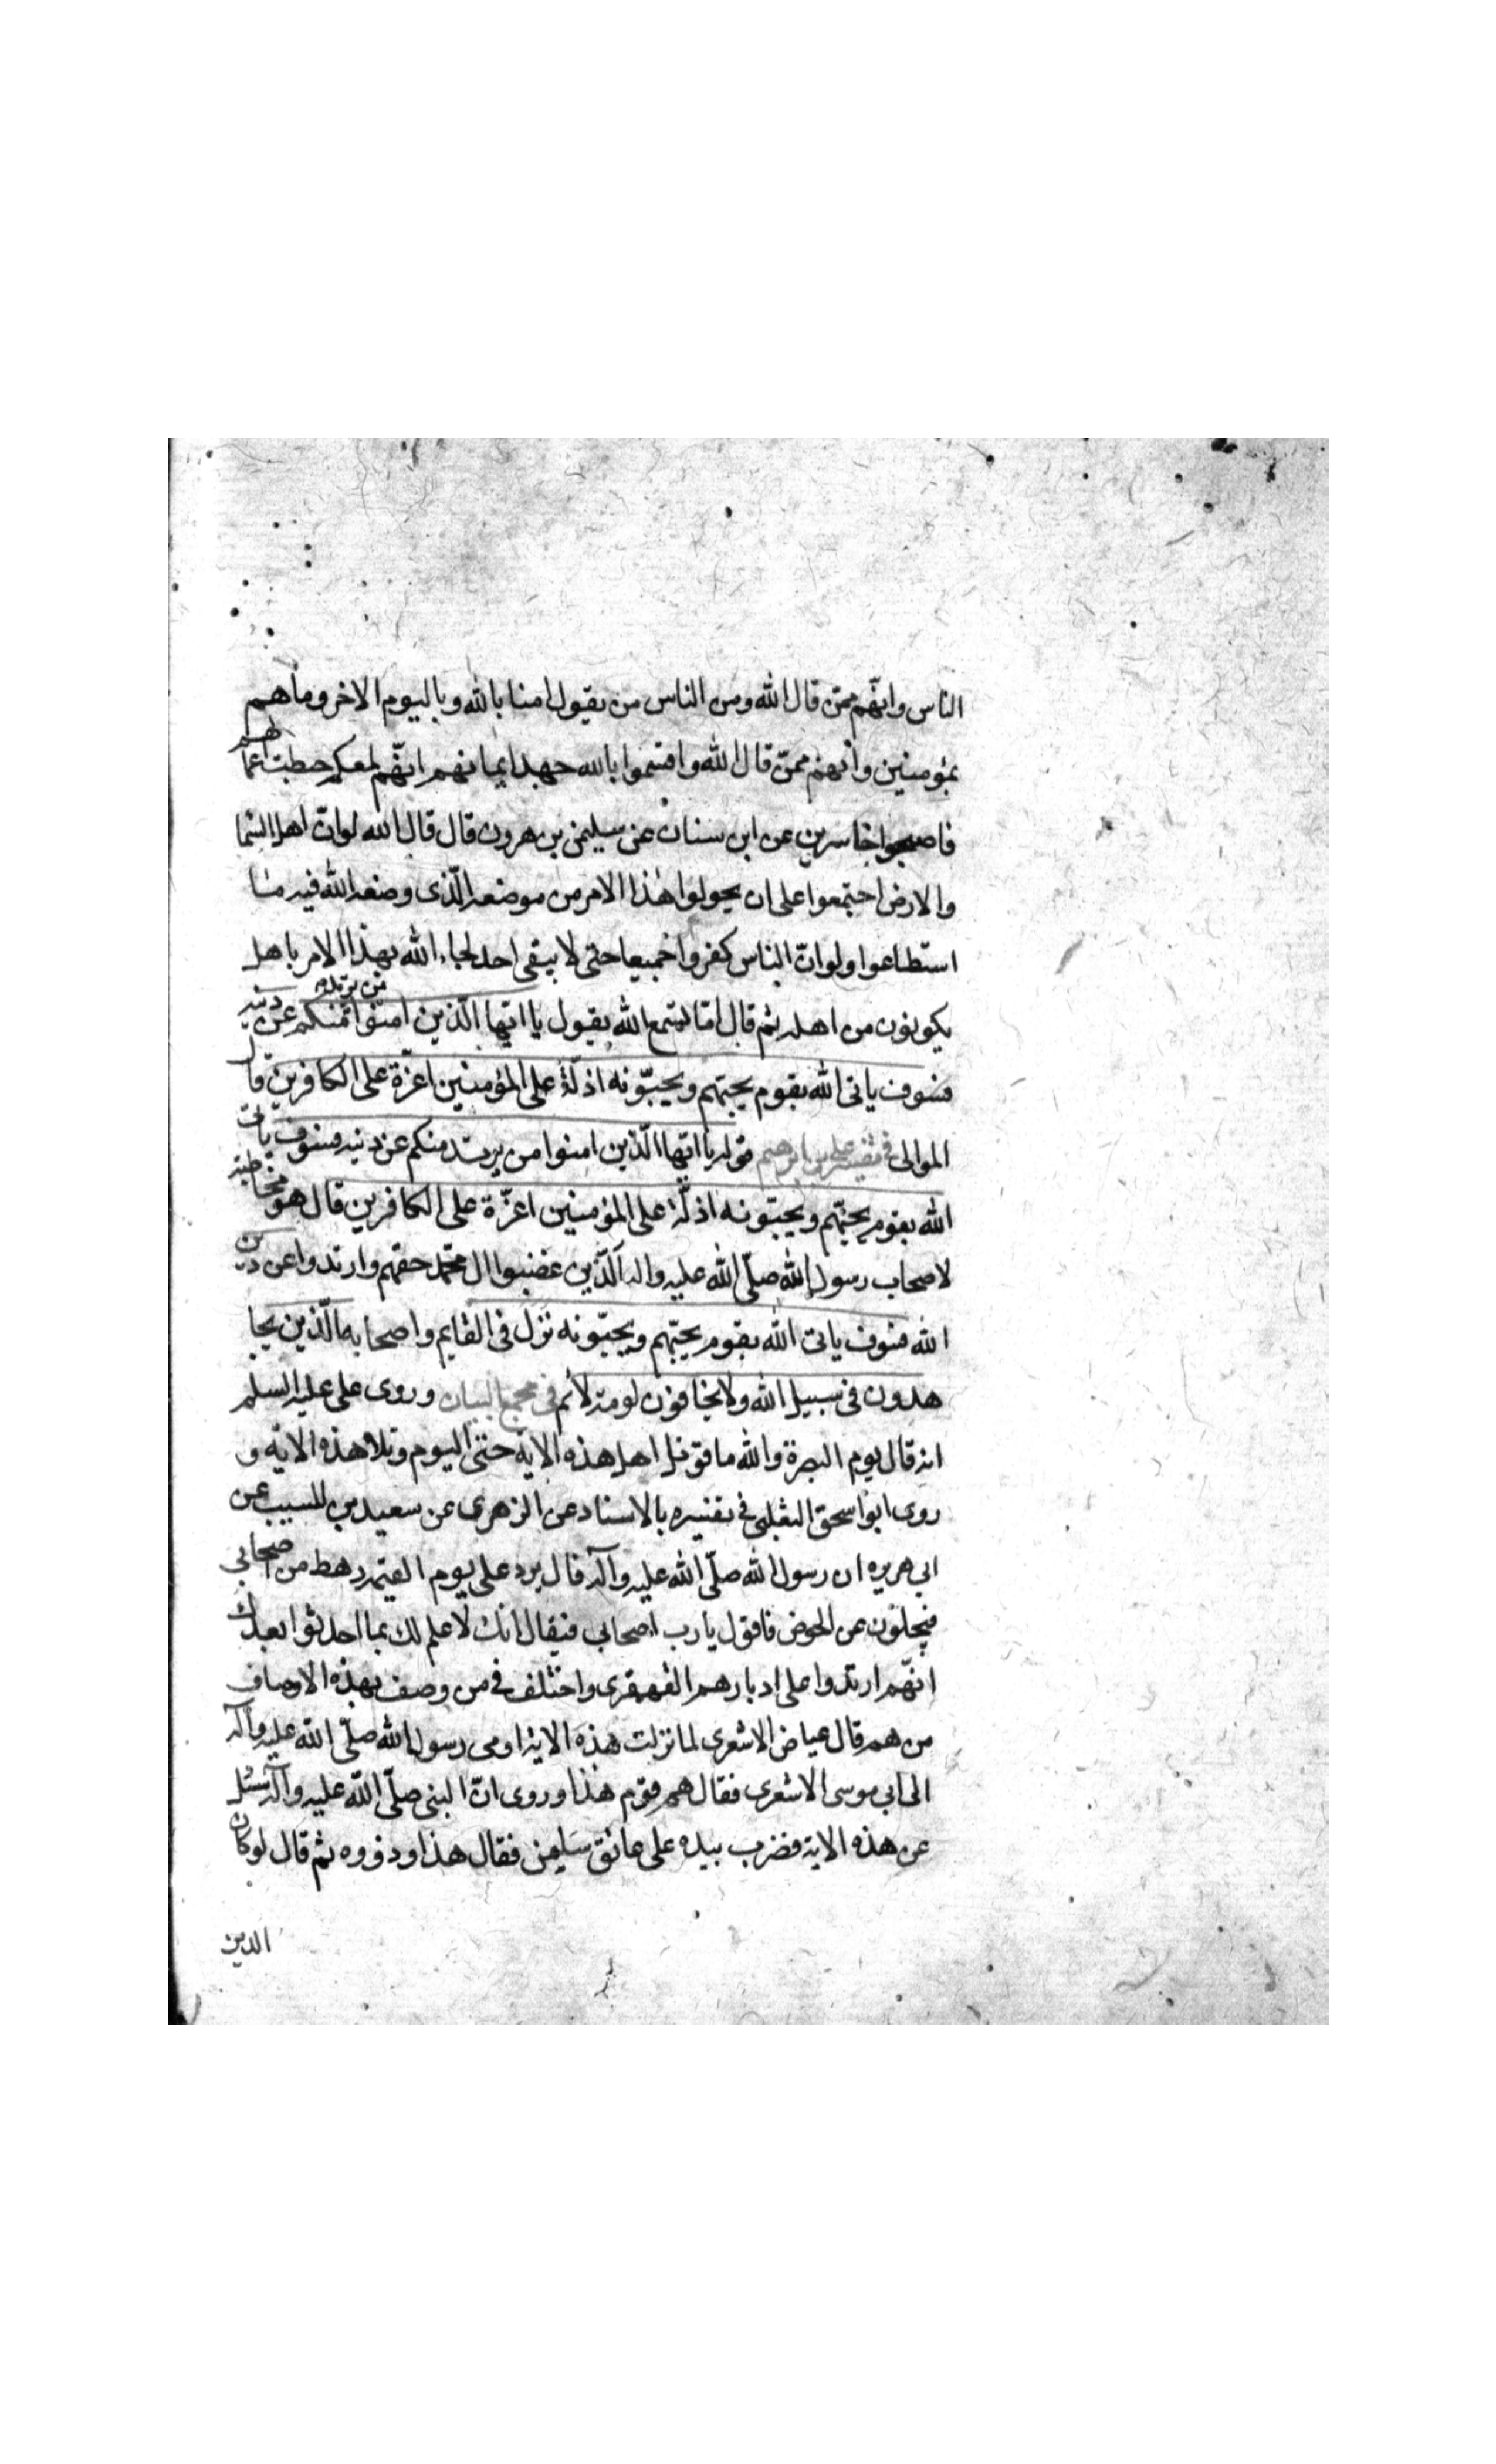 الناس وانّهم ممّن قال الله ومن الناس من يقول امنا بالله وباليوم الاخر وما هم
بمؤمنين وانهم ممّن قال الله واقسموا بالله جهد ايمانهم انّهم لمعكم حبطت اعمالهم
فاصبحوا خاسرين عن ابن سنان عن سليمن بن هرون قال قال الله لو انّ اهل السّما
والارض اجتمعوا على ان يحولوا هذا الامر من موضعه الّذى وضعه الله فيه ما
استطاعوا ولو انّ الناس كفروا جميعا حتى لا يبقى احد لجاء الله بهذا الامر باهل
يكونون من اهله ثم قال اما تسمع الله يقول يا ايّها الّذين امنوا من يرتد منكم عن دينه
فسوف ياتى الله بقوم يحبّهم ويحبّونه اذلّة على المؤمنين اعزّة على الكافرين قال
الموالى فى تفسير على بن ابرهيم قوله يا ايّها الّذين امنوا من يرتد منكم عن دينه فسوف ياتى
الله بقوم يحبّهم ويحبّونه اذلّة على المؤمنين اعزّة على الكافرين قال هو مخاطبة
لاصحاب رسول الله صلّى الله عليه واله الّذين غصبوا ال محمّد حقهم وارتدوا عن دين
الله فسوف ياتى الله بقوم يحبّهم ويحبّونه نزل فى القايم واصحابه الّذين يجا
هدون فى سبيل الله ولا يخافون لومة لائم فى مجمع البيان وروى على عليه السلم
انه قال يوم البصرة والله ما قوتل اهل هذه الاية حتى اليوم وتلا هذه الاية و
روى ابو اسحق الثعلبى فى تفسيره بالاسناد عن الزهرى عن سعيد بن المسيب عن
ابى هريره ان رسول الله صلّى الله عليه وآله قال يرد على يوم القيمة رهط من اصحابى
فيجلون عن الحوض فاقول يا رب اصحابى فيقال انك لا علم لك بما احدثوا بعدك
انّهم ارتدوا على ادبارهم القهقرى واختلف فى من وصف بهذه الاوصاف
من هم قال عياض الاشعرى لما نزلت هذه الاية اومى رسول الله صلّى الله عليه وآله
الى ابى موسى الاشعرى فقال هم قوم هذا وروى انّ النبى صلّى الله عليه وآله سئل
عن هذه الاية فضرب بيده على عاتق سليمن فقال هذا وذووه ثم قال لو كان
الدين